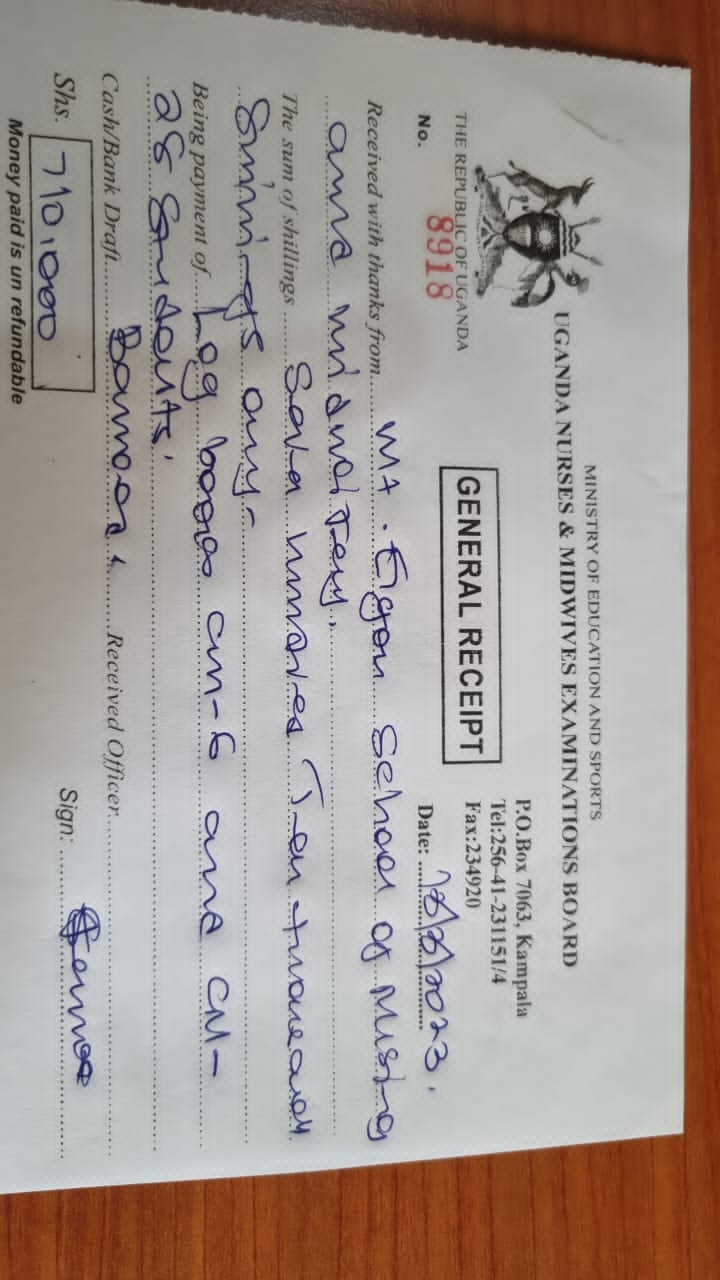 MINISTRY OF EDUCATION AND SPORTS
UGANDA NURSES & MIDWIVES EXAMINATIONS BOARD
P.O.Box 7063, Kampala
Tel:256-41-231151/4
Fax:234920
THE REPUBLIC OF UGANDA
GENERAL RECEIPT
No. 8918
Date: 18/8/2023.
Received with thanks from Mt. Elgon School of Nursing
and midwifery.
The sum of shillings Seven hundred Ten thousand
Shillings only-
Being payment of Log books CN-6 and CM-
28 Students.
Cash/Bank Draft Received Officer
Shs. 710,000 Sign:
Money paid is un refundable